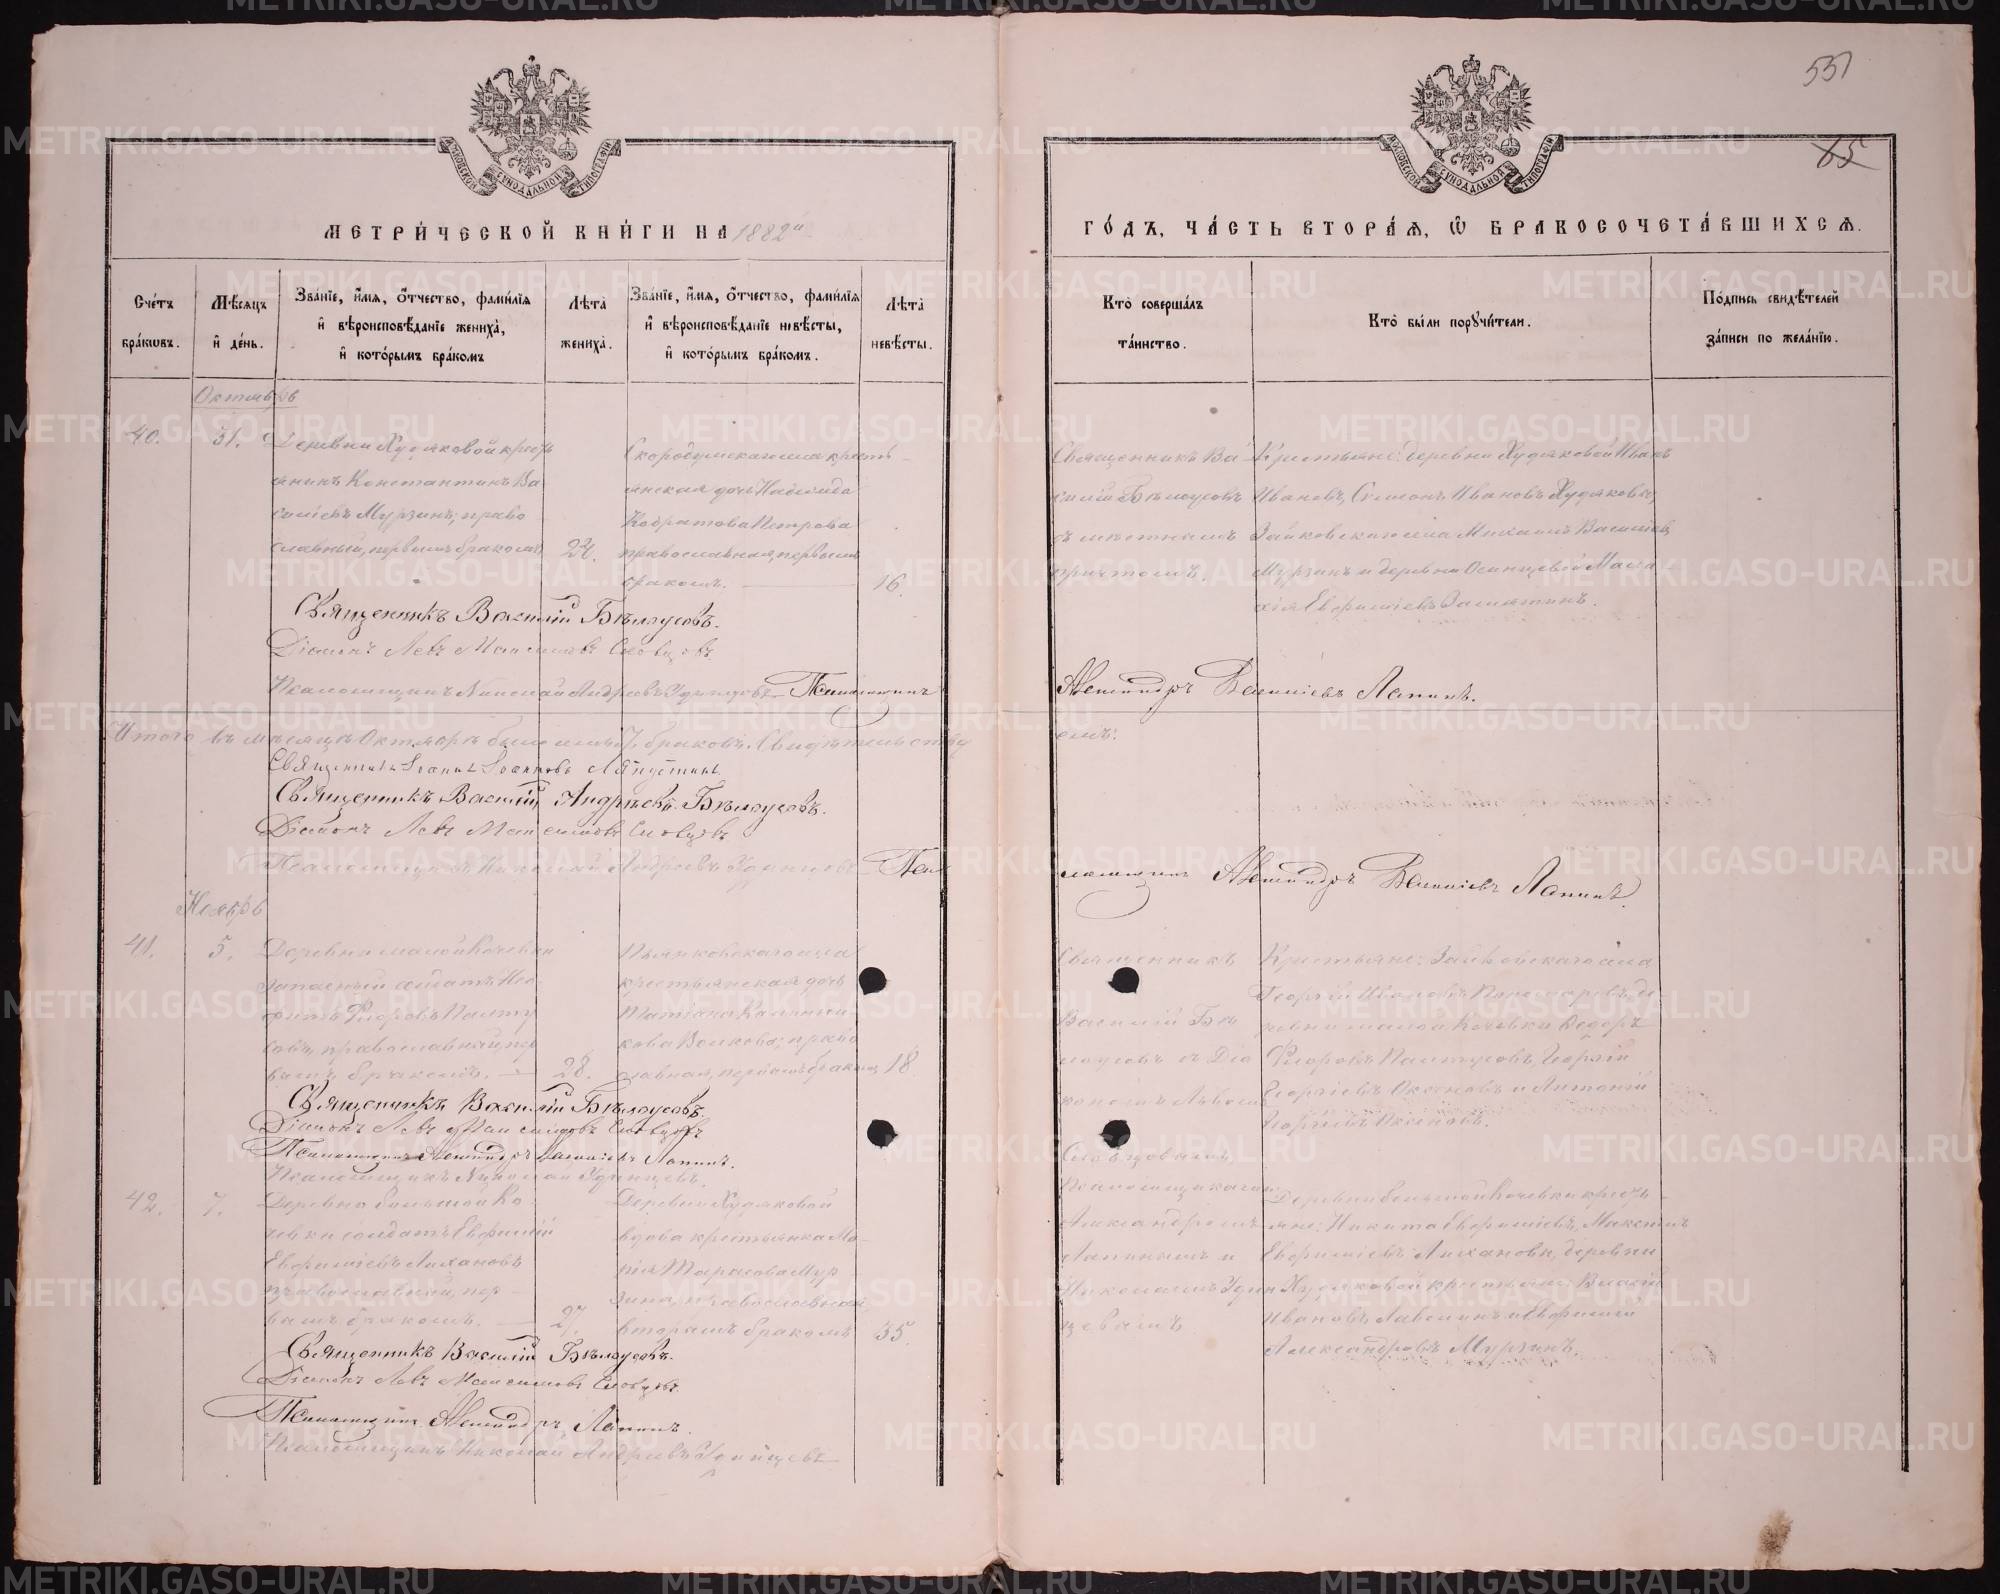 551
65
МОСКОВСКОЙ СѴНОДАЛЬНОЙ ТИПОГРАФІИ
МОСКОВСКОЙ СѴНОДАЛЬНОЙ ТИПОГРАФІИ
МЕТРИЧЕСКОЙ КНИГИ НА 1882й
ГОДЪ, ЧАСТЬ ВТОРАЯ, Ѿ БРАКОСОЧЕТАВШИХСЯ.
Счетъ браковъ.
Мѣсяцъ и день.
Званіе, имя, отчество, фамилія
и вѣроисповѣданіе жениха,
и которымъ бракомъ
Лѣта жениха.
Званіе, имя, отчество, фамилія
и вѣроисповѣданіе невѣсты,
и которымъ бракомъ.
Лѣта невѣсты.
Кто совершалъ
таинство.
Кто были поручители.
Подпись свидѣтелей
записи по желанію.
Октябрь
40.
31.
Деревни Худяковой кресть
янинъ Константинъ Ва
сильевъ Мурзинъ, право
славный, первымъ бракомъ
24.
Скородумскаго села кресть-
янская дочь
Петрова
православная, первым
бракомъ.
16.
Священникъ Ва
силій Бѣлоусовъ
съ мѣстнымъ
причтомъ.
Крестьяне: деревни Худяковой Иванъ
Ивановъ, Семенъ Ивановъ Худяковы,
Зайковскаго села Михаилъ Васильевъ
Мурзинъ и деревни Осинцевой Мала-
хія Евфиміевъ Замятинъ.
Священникъ Василій Бѣлоусовъ.
Діаконъ Левъ Максимовъ Словцовъ.
Псаломщикъ Николай Андреевъ Удинцовъ Псаломщикъ
Александръ Васильевъ Лапинъ.
Итого въ мѣсяцѣ Октябрѣ было браковъ. Свидѣтельству
емъ:
Священникъ Іоаннъ Іоанновъ
Священникъ Василій Андреевъ Бѣлоусовъ.
Діаконъ Левъ Максимовъ Словцовъ
Псаломщикъ Николай Андреевъ Удинцовъ Псал
омщикъ Александръ Васильевъ Лапинъ.
Ноябрь
41.
5.
Деревни малой Кочевки
запасный солдатъ Нео-
фитъ Флоровъ Палту
совъ, православный, пер
вымъ бракомъ.
28.
Пьянковскаго села
крестьянская дочь
Татіана
кова Волкова, право
славная, первымъ бракомъ
18.
Священникъ
Василій Бѣ
лоусовъ съ Діа
кономъ Львомъ
Словцовымъ,
Псаломщиками
Александромъ
Лапинымъ и
Николаемъ Удин
цевымъ
Крестьяне:
Георгій Ивановъ де
ревни малой Кочевки Ѳедоръ
Флоровъ Палтусовъ, Георгій
Георгіевъ Оксановъ и Антоній
Георгіевъ Оксановъ.
Священникъ Василій Бѣлоусовъ.
Діаконъ Левъ Максимовъ Словцовъ
Псаломщикъ Александръ Васильевъ Лапинъ.
Псаломщикъ Николай Удинцевъ.
42.
7.
Деревни большой Ко-
чевки солдатъ Евфимій
Евфиміевъ Лихановъ
православный, пер-
вымъ бракомъ.
27.
Деревни Худяковой
вдова крестьянка Ма-
рія Тарасова Мур
зина, православная
вторымъ бракомъ
35.
Деревни большой Кочевки кресть-
яне: Никита Евфиміевъ, Максимъ
Евфиміевъ Лихановы, деревни
Худяковой крестьяне: Власій
Ивановъ и Евфимій
Александровъ Мурзинъ.
Священникъ Василій Бѣлоусовъ.
Діаконъ Левъ Максимовъ Словцовъ.
Псаломщикъ Александръ Лапинъ.
Псаломщикъ Николай Андреевъ Удинцевъ
METRIKI.GASO-URAL.RU